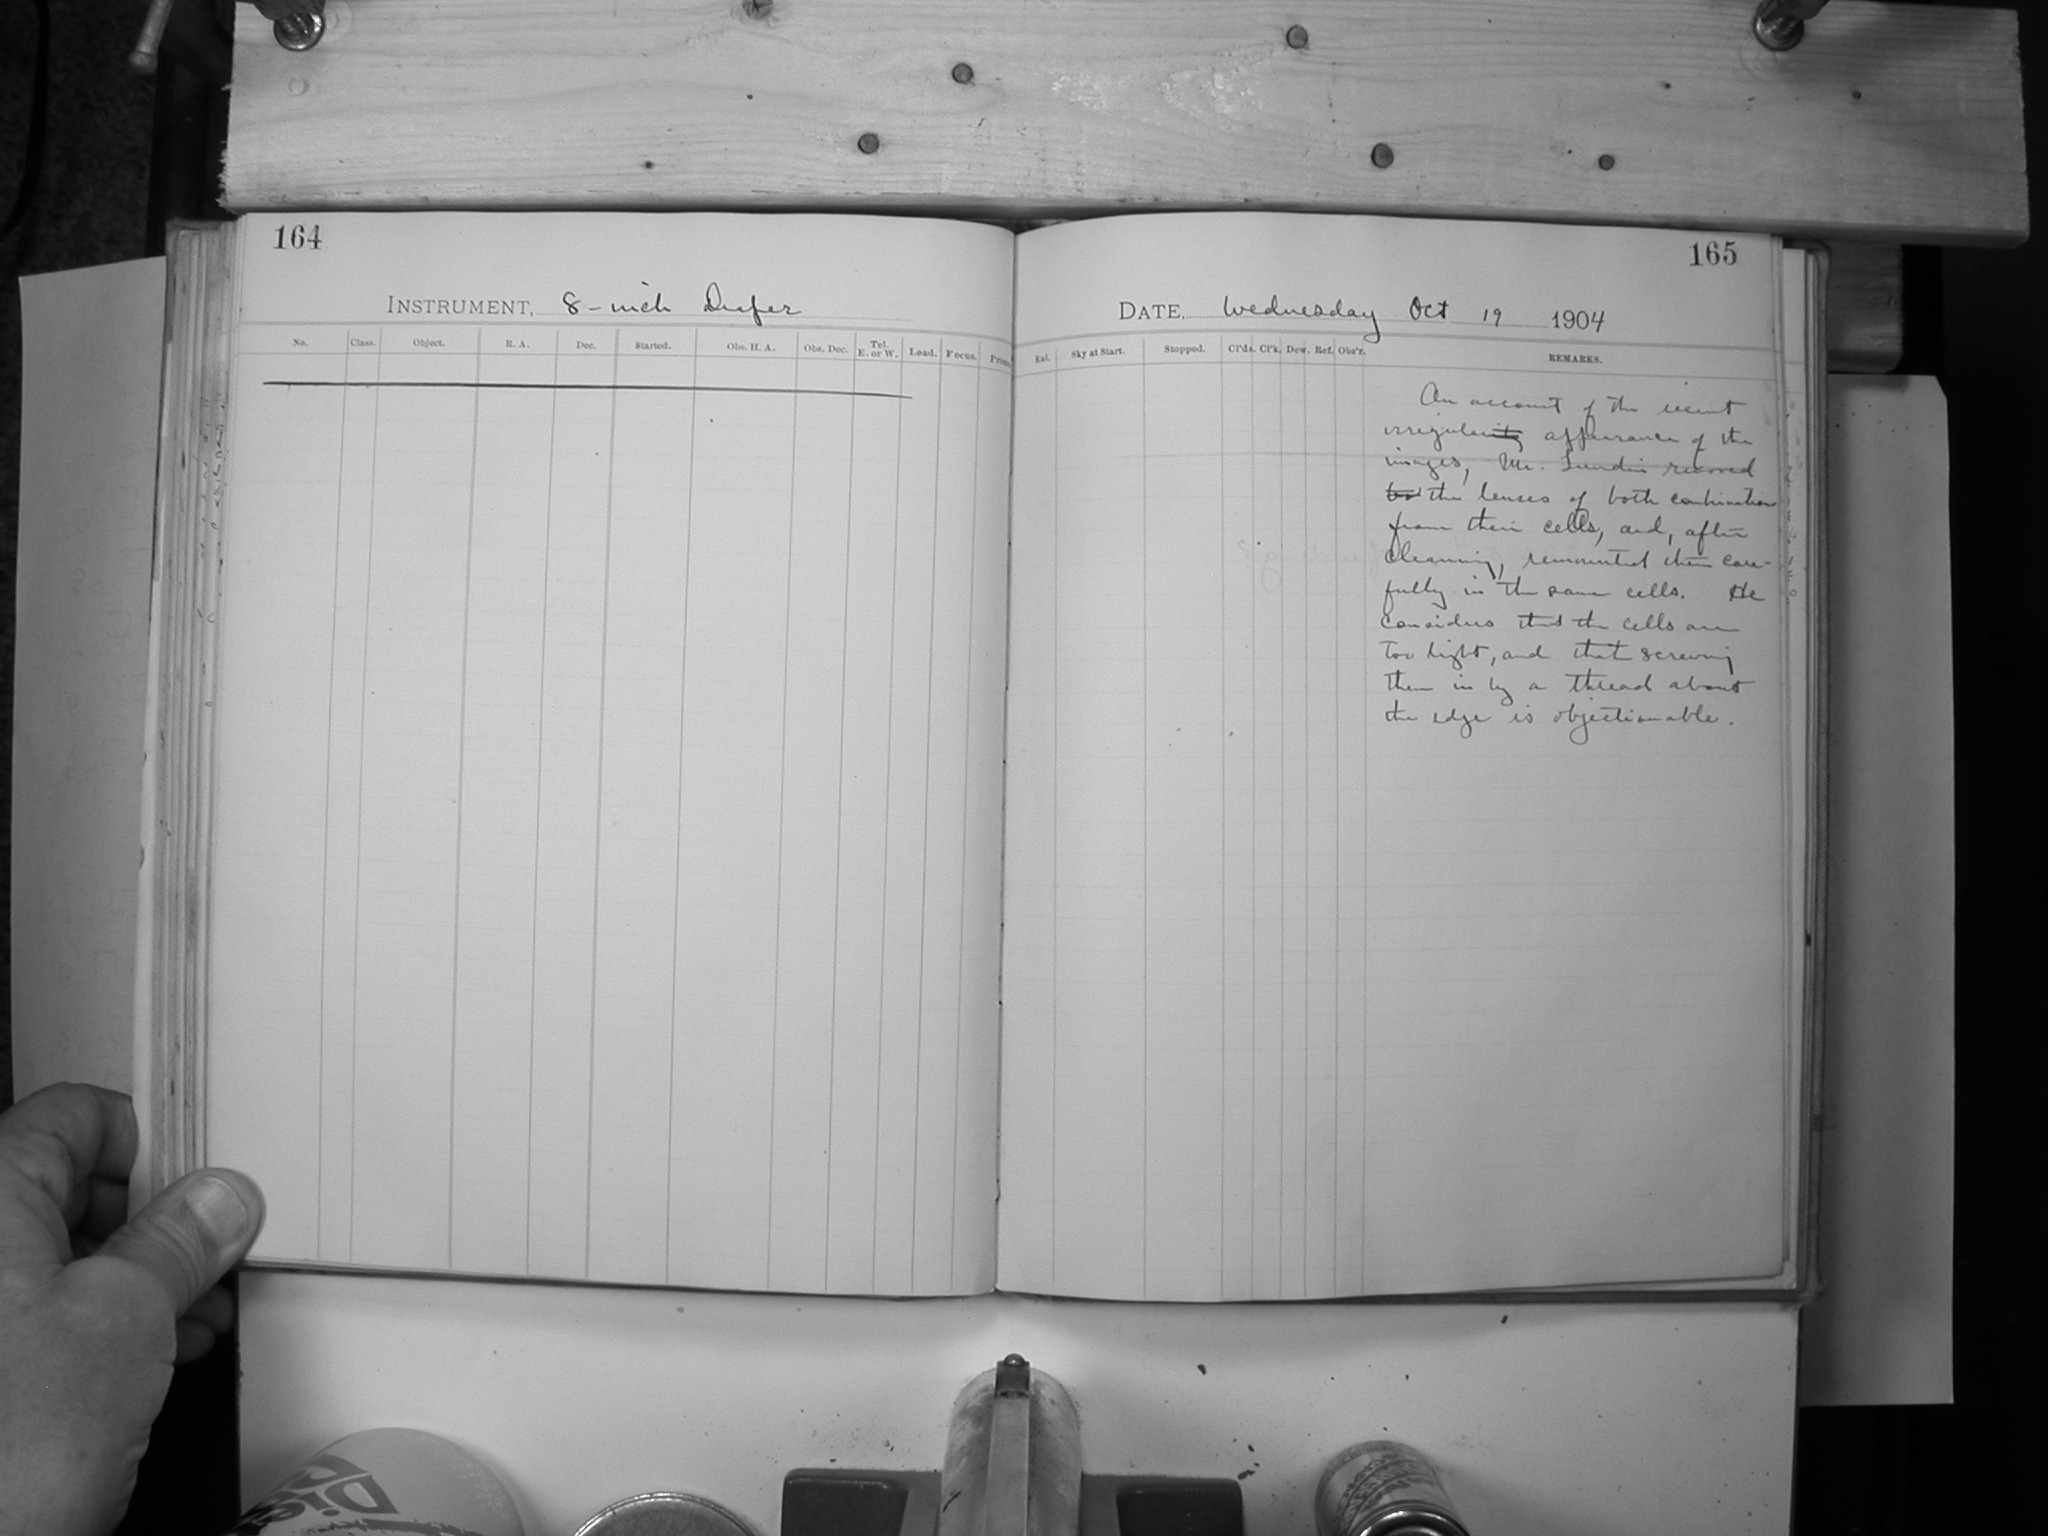 164
INSTRUMENT, 8-inch Draper
No. Class. Object. R. A. Dec. Started. Obs. H. A. Obs. Dec. Tel. E. or W. Load. Focus. Prism
165
DATE, Wednesday Oct 19 1904
Ext. Sky at Start. Stopped. Cl'ds. Cl'k. Dew. Ref. Obs'r. REMARKS.
On account of the recent
irregularity appearance of the
images, Mr. Lundin removed
bo the lenses of both combinations
from their cells, and, after
cleaning, remounted them care-
fully in the same cells. He
considers that the cells are
too light, and that screwing
them in by a thread about
the edge is objectionable.
Diet